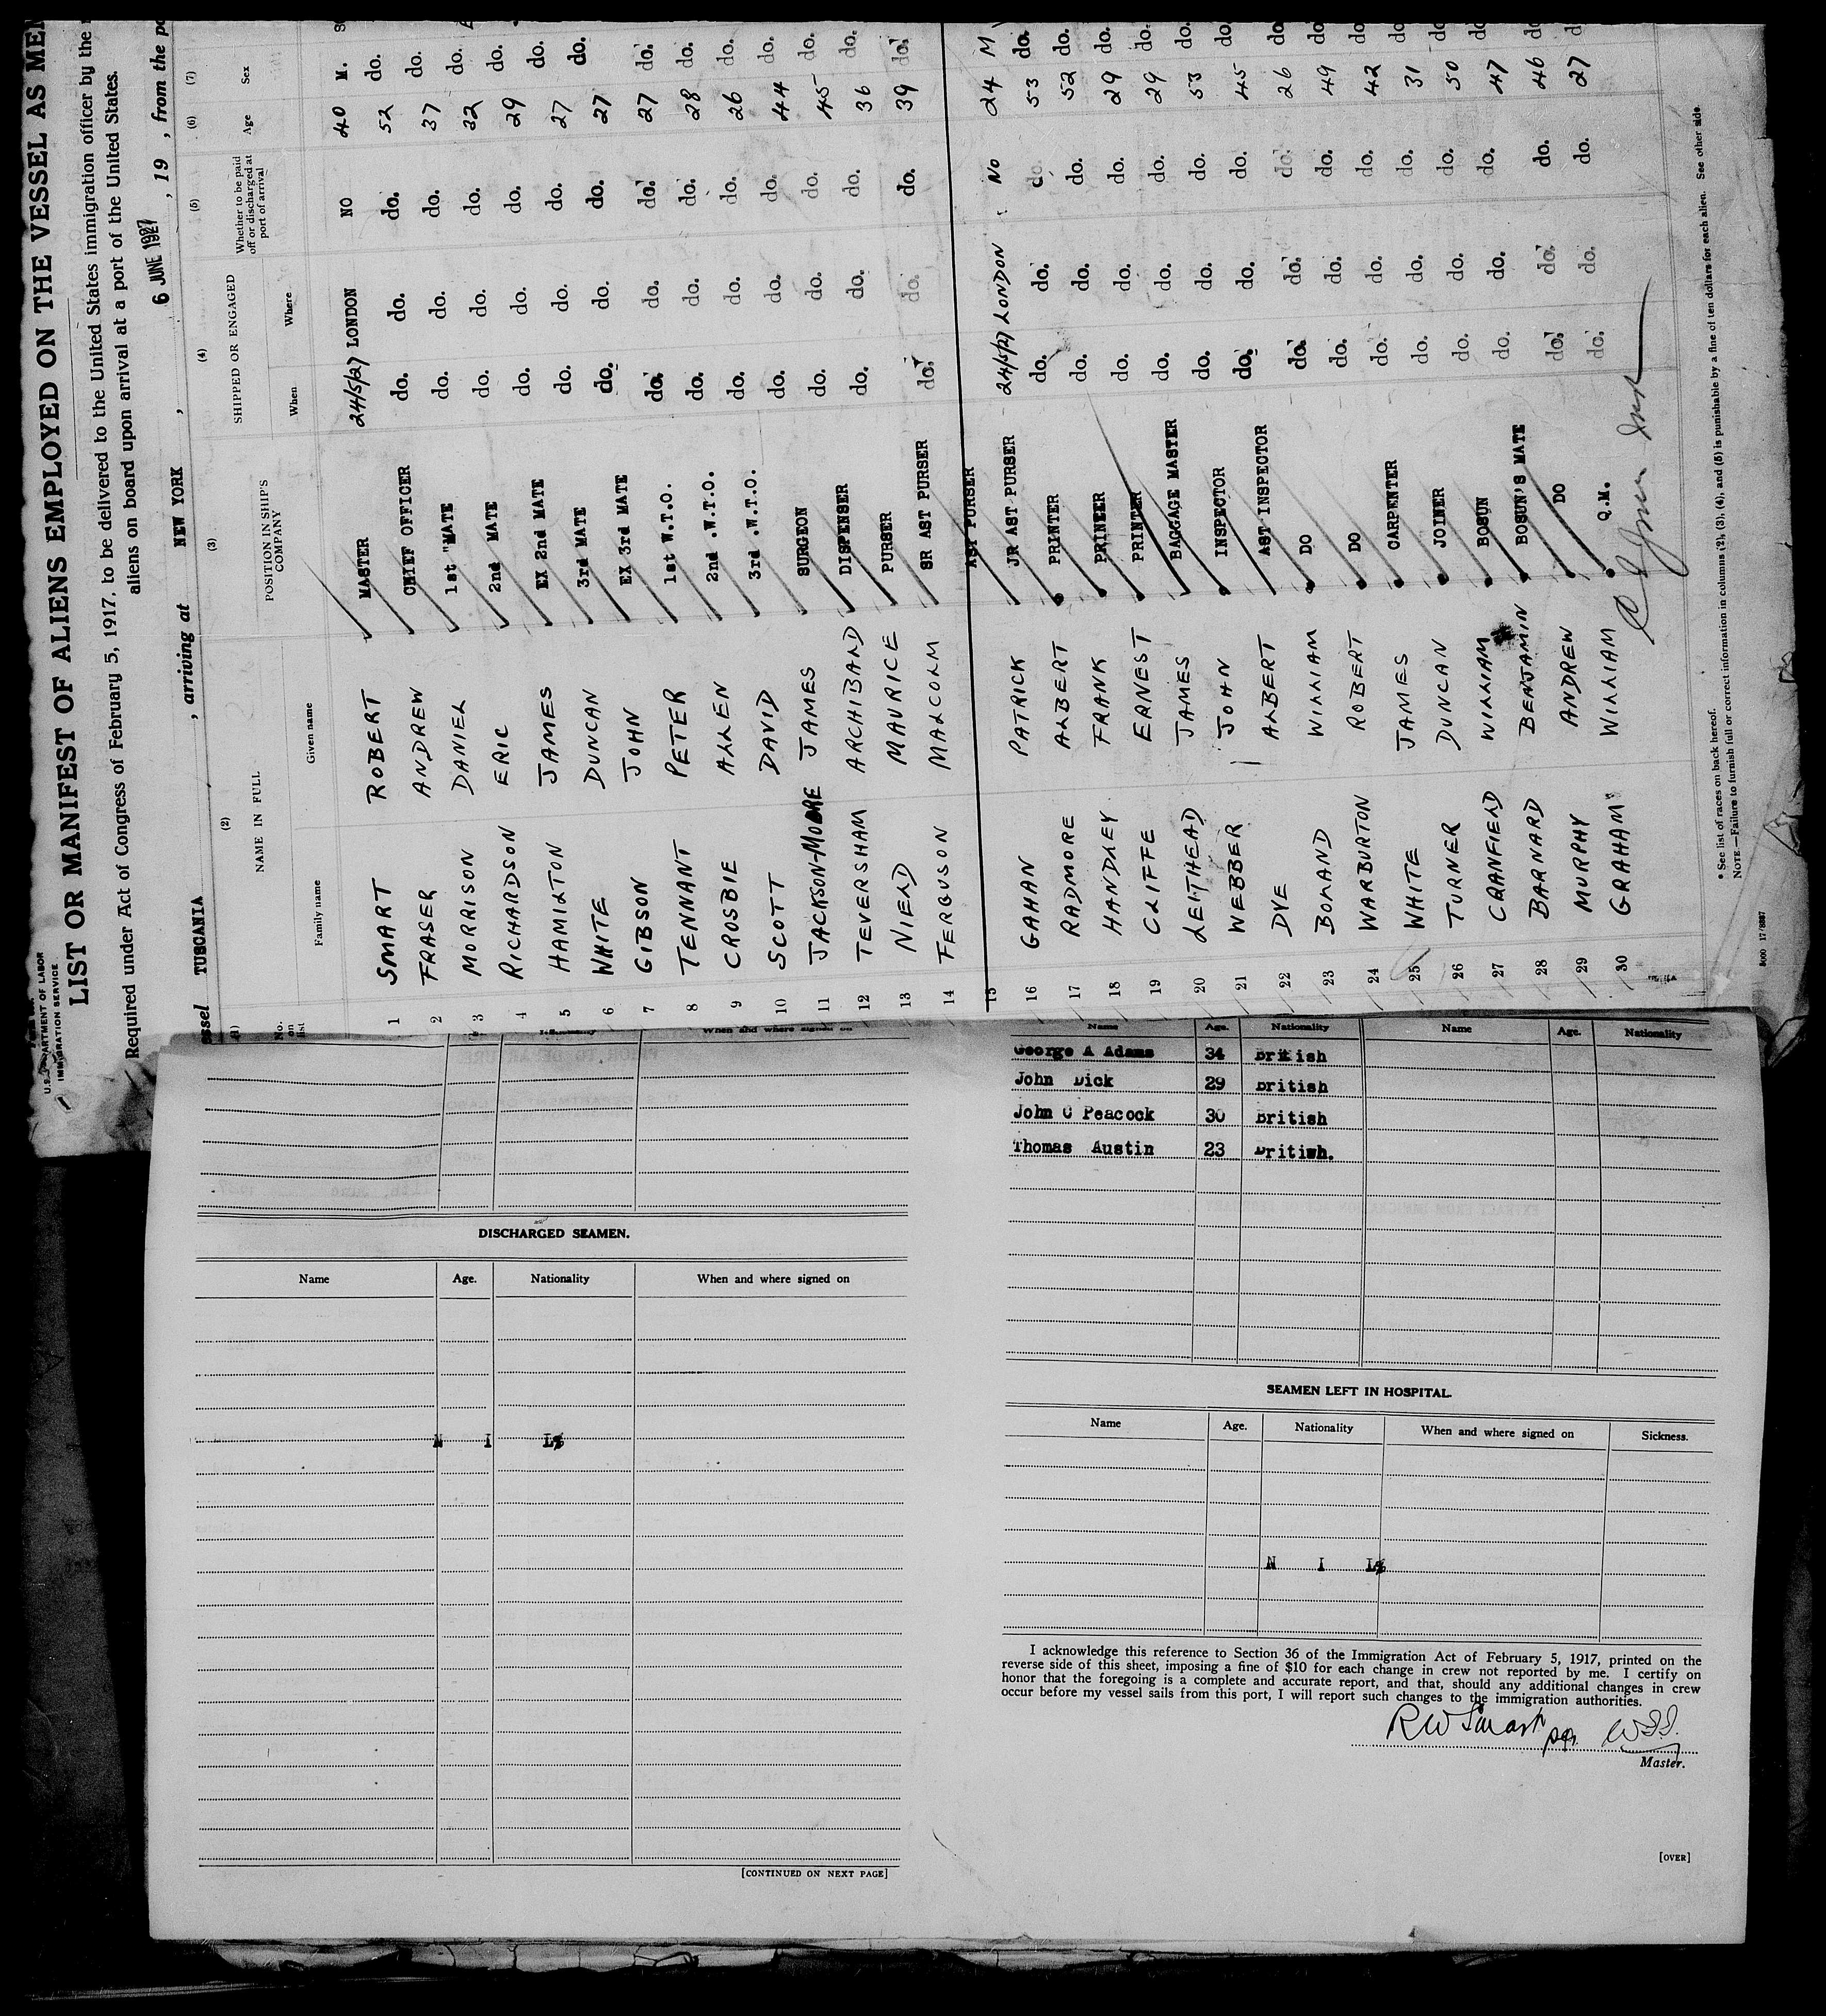 U.S. DEPARTMENT OF LABOR
IMMIGRATION SERVICE
LIST OR MANIFEST OF ALIENS EMPLOYED ON THE VESSEL AS MEM
Required under Act of Congress of February 5, 1917, to be delivered to the United States immigration officer by the
aliens on board upon arrival at a port of the United States.
ssel TUSCANIA , arriving at NEW YORK , 6 JUNE 1927 , 19 , from the po
(1) (2) (3) (4) (5) (6) (7)
No. on list NAME IN FULL POSITION IN SHIP'S COMPANY SHIPPED OR ENGAGED Whether to be paid off or discharged at port of arrival Age Sex
Family name Given name When Where
1 SMART ROBERT MASTER 24/5/27 LONDON NO 40 M.
2 FRASER ANDREW CHIEF OFFICER do. do. do. 52 do.
3 MORRISON DANIEL 1st "MATE do. do. do. 37 do.
4 RICHARDSON ERIC 2nd MATE do. do. do. 32 do.
5 HAMILTON JAMES EX 2nd MATE do. do. do. 29 do.
6 WHITE DUNCAN 3rd MATE do. do. do. 27 do.
7 GIBSON JOHN EX 3rd MATE do. do. do. 27 do.
8 TENNANT PETER 1st W.T.O. do. do. do. 27 do.
9 CROSBIE ALLEN 2nd .W.T.O. do. do. do. 28 do.
10 SCOTT DAVID 3rd .W.T.O. do. do. do. 26 do.
11 JACKSON-MOORE JAMES SURGEON do. do. do. 44 do.
12 TEVERSHAM ARCHIBALD DISPENSER do. do. do. 45 do.
13 NIELD MAURICE PURSER do. do. do. 36 do.
14 FERGUSON MALCOLM SR AST PURSER do. do. do. 39 do.
15 AST PURSER
16 GAHAN PATRICK JR AST PURSER 24/5/27 LONDON NO 24 M
17 RADMORE ALBERT PRINTER do. do. do. 53 do.
18 HANDLEY FRANK PRINEER do. do. do. 52 do.
19 CLIFFE ERNEST PRINTER do. do. do. 29 do.
20 LEITHEAD JAMES BAGGAGE MASTER do. do. do. 29 do.
21 WEBBER JOHN INSPECTOR do. do. do. 53 do.
22 DYE ALBERT AST INSPECTOR do. do. do. 45 do.
23 BOLAND WILLIAM DO do. do. do. 26 do.
24 WARBURTON ROBERT DO do. do. do. 49 do
25 WHITE JAMES CARPENTER do. do. do. 42 do
26 TURNER DUNCAN JOINER do. do. do. 31 do
27 CRANFIELD WILLIAM BOSUN do. do. do. 50 do
28 BARNARD BENJAMIN BOSUN'S MATE do. do. do. 47 do
29 MURPHY ANDREW DO do. do. do. 46 do
30 GRAHAM WILLIAM Q.M. do. do. do. 27 d
* See list of races on back hereof.
NOTE.—Failure to furnish full or correct information in columns (2), (3), (4), and (6) is punishable by a fine of ten dollars for each alien. See other side
5000 17/8887
When and where signed on
DISCHARGED SEAMEN.
Name Age. Nationality When and where signed on
N I L
[CONTINUED ON NEXT PAGE]
Name Age. Nationality Name Age. Nationality
George A Adams 34 British
John Dick 29 British
John C Peacock 30 British
Thomas Austin 23 British.
SEAMEN LEFT IN HOSPITAL.
Name Age. Nationality When and where signed on Sickness.
N I L
I acknowledge this reference to Section 36 of the Immigration Act of February 5, 1917, printed on the
reverse side of this sheet, imposing a fine of $10 for each change in crew not reported by me. I certify on
honor that the foregoing is a complete and accurate report, and that, should any additional changes in crew
occur before my vessel sails from this port, I will report such changes to the immigration authorities.
RW Smart
Master.
[OVER]